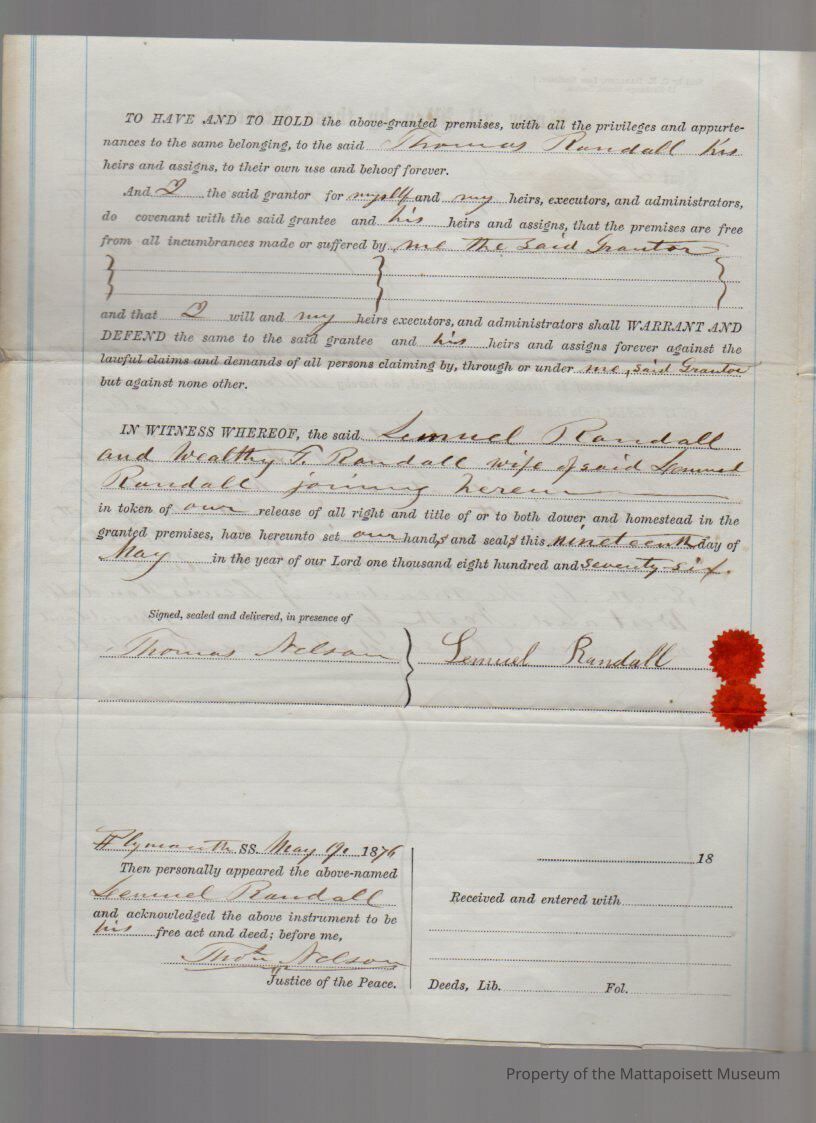 TO HAVE AND TO HOLD the above-granted premises, with all the privileges and appurte-
nances to the same belonging, to the said Thomas Randall his
heirs and assigns, to their own use and behoof forever.
And I the said grantor for myself and my heirs, executors, and administrators,
do covenant with the said grantee and his heirs and assigns, that the premises are free
from all incumbrances made or suffered by me the said Grantor
and that I will and my heirs executors, and administrators shall WARRANT AND
DEFEND the same to the said grantee and his heirs and assigns forever against the
lawful claims and demands of all persons claiming by, through or under me, said Grantor
but against none other.
IN WITNESS WHEREOF, the said Lemuel Randall
and Wealthy T. Randall wife of said Lemuel
Randall joining herein
in token of our release of all right and title of or to both dower and homestead in the
granted premises, have hereunto set our hands and seals this nineteenth day of
May in the year of our Lord one thousand eight hundred and seventy-six.
Signed, sealed and delivered, in presence of
Thomas Nelson } Lemuel Randall
Plymouth SS. May 19. 1876
Then personally appeared the above-named
Lemuel Randall
and acknowledged the above instrument to be
his free act and deed; before me,
Thos. Nelson
Justice of the Peace.
18
Received and entered with
Deeds, Lib. Fol.
Property of the Mattapoisett Museum